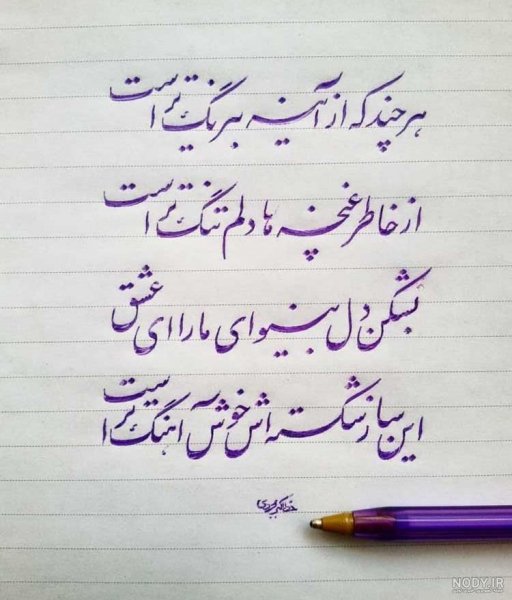 هر چند که از آینه بیرنگ تر است
از خاطر غنچه ها دلم تنگ تر است
بشکن دل بینوای ما را ای عشق
این ساز شکسته اش خوش آهنگ تر است
NODY.IR